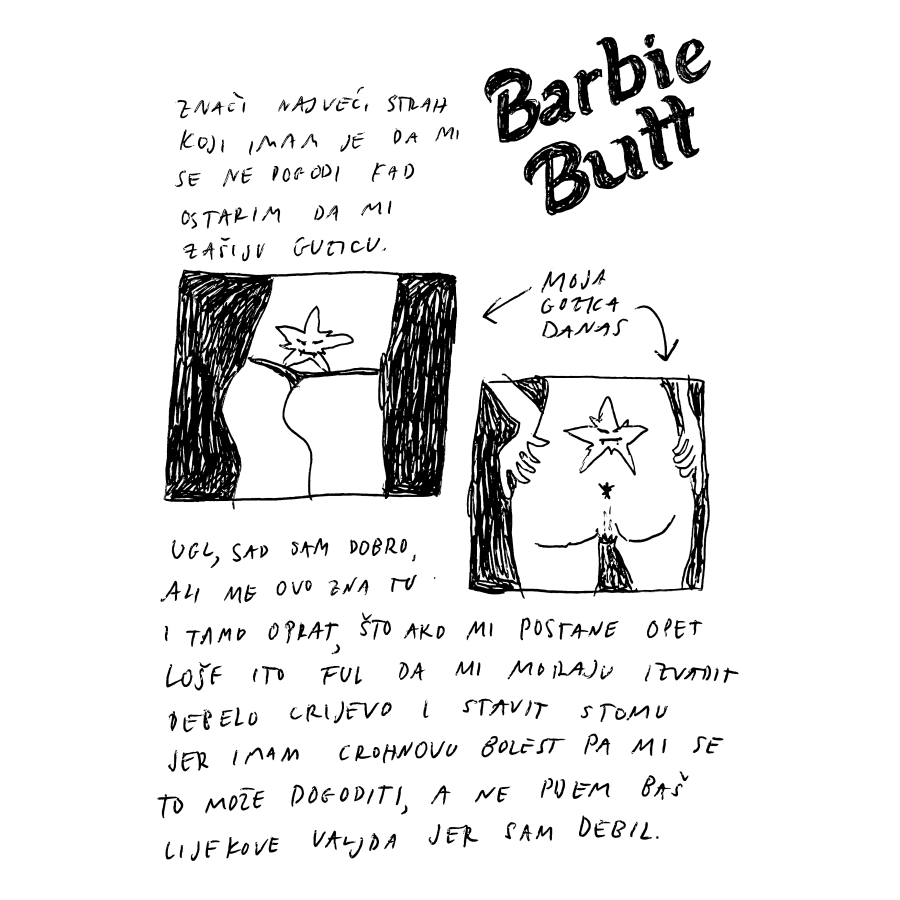 Barbie
Butt
ZNAČI NAJVEĆI STRAH
KOJI IMAM JE DA MI
SE NE DOGODI KAD
OSTARIM DA MI
ZAŠIJU GUZICU.
MOJA
GUZICA
DANAS
UGL, SAD SAM DOBRO,
ALI ME OVO ZNA TU
I TAMO OPRAT, ŠTO AKO MI POSTANE OPET
LOŠE ITO FUL DA MI MORAJU IZVADIT
DEBELO CRIJEVO I STAVIT STOMU
JER IMAM CROHNOVU BOLEST PA MI SE
TO MOŽE DOGODITI, A NE PIJEM BAŠ
LIJEKOVE VALJDA JER SAM DEBIL.